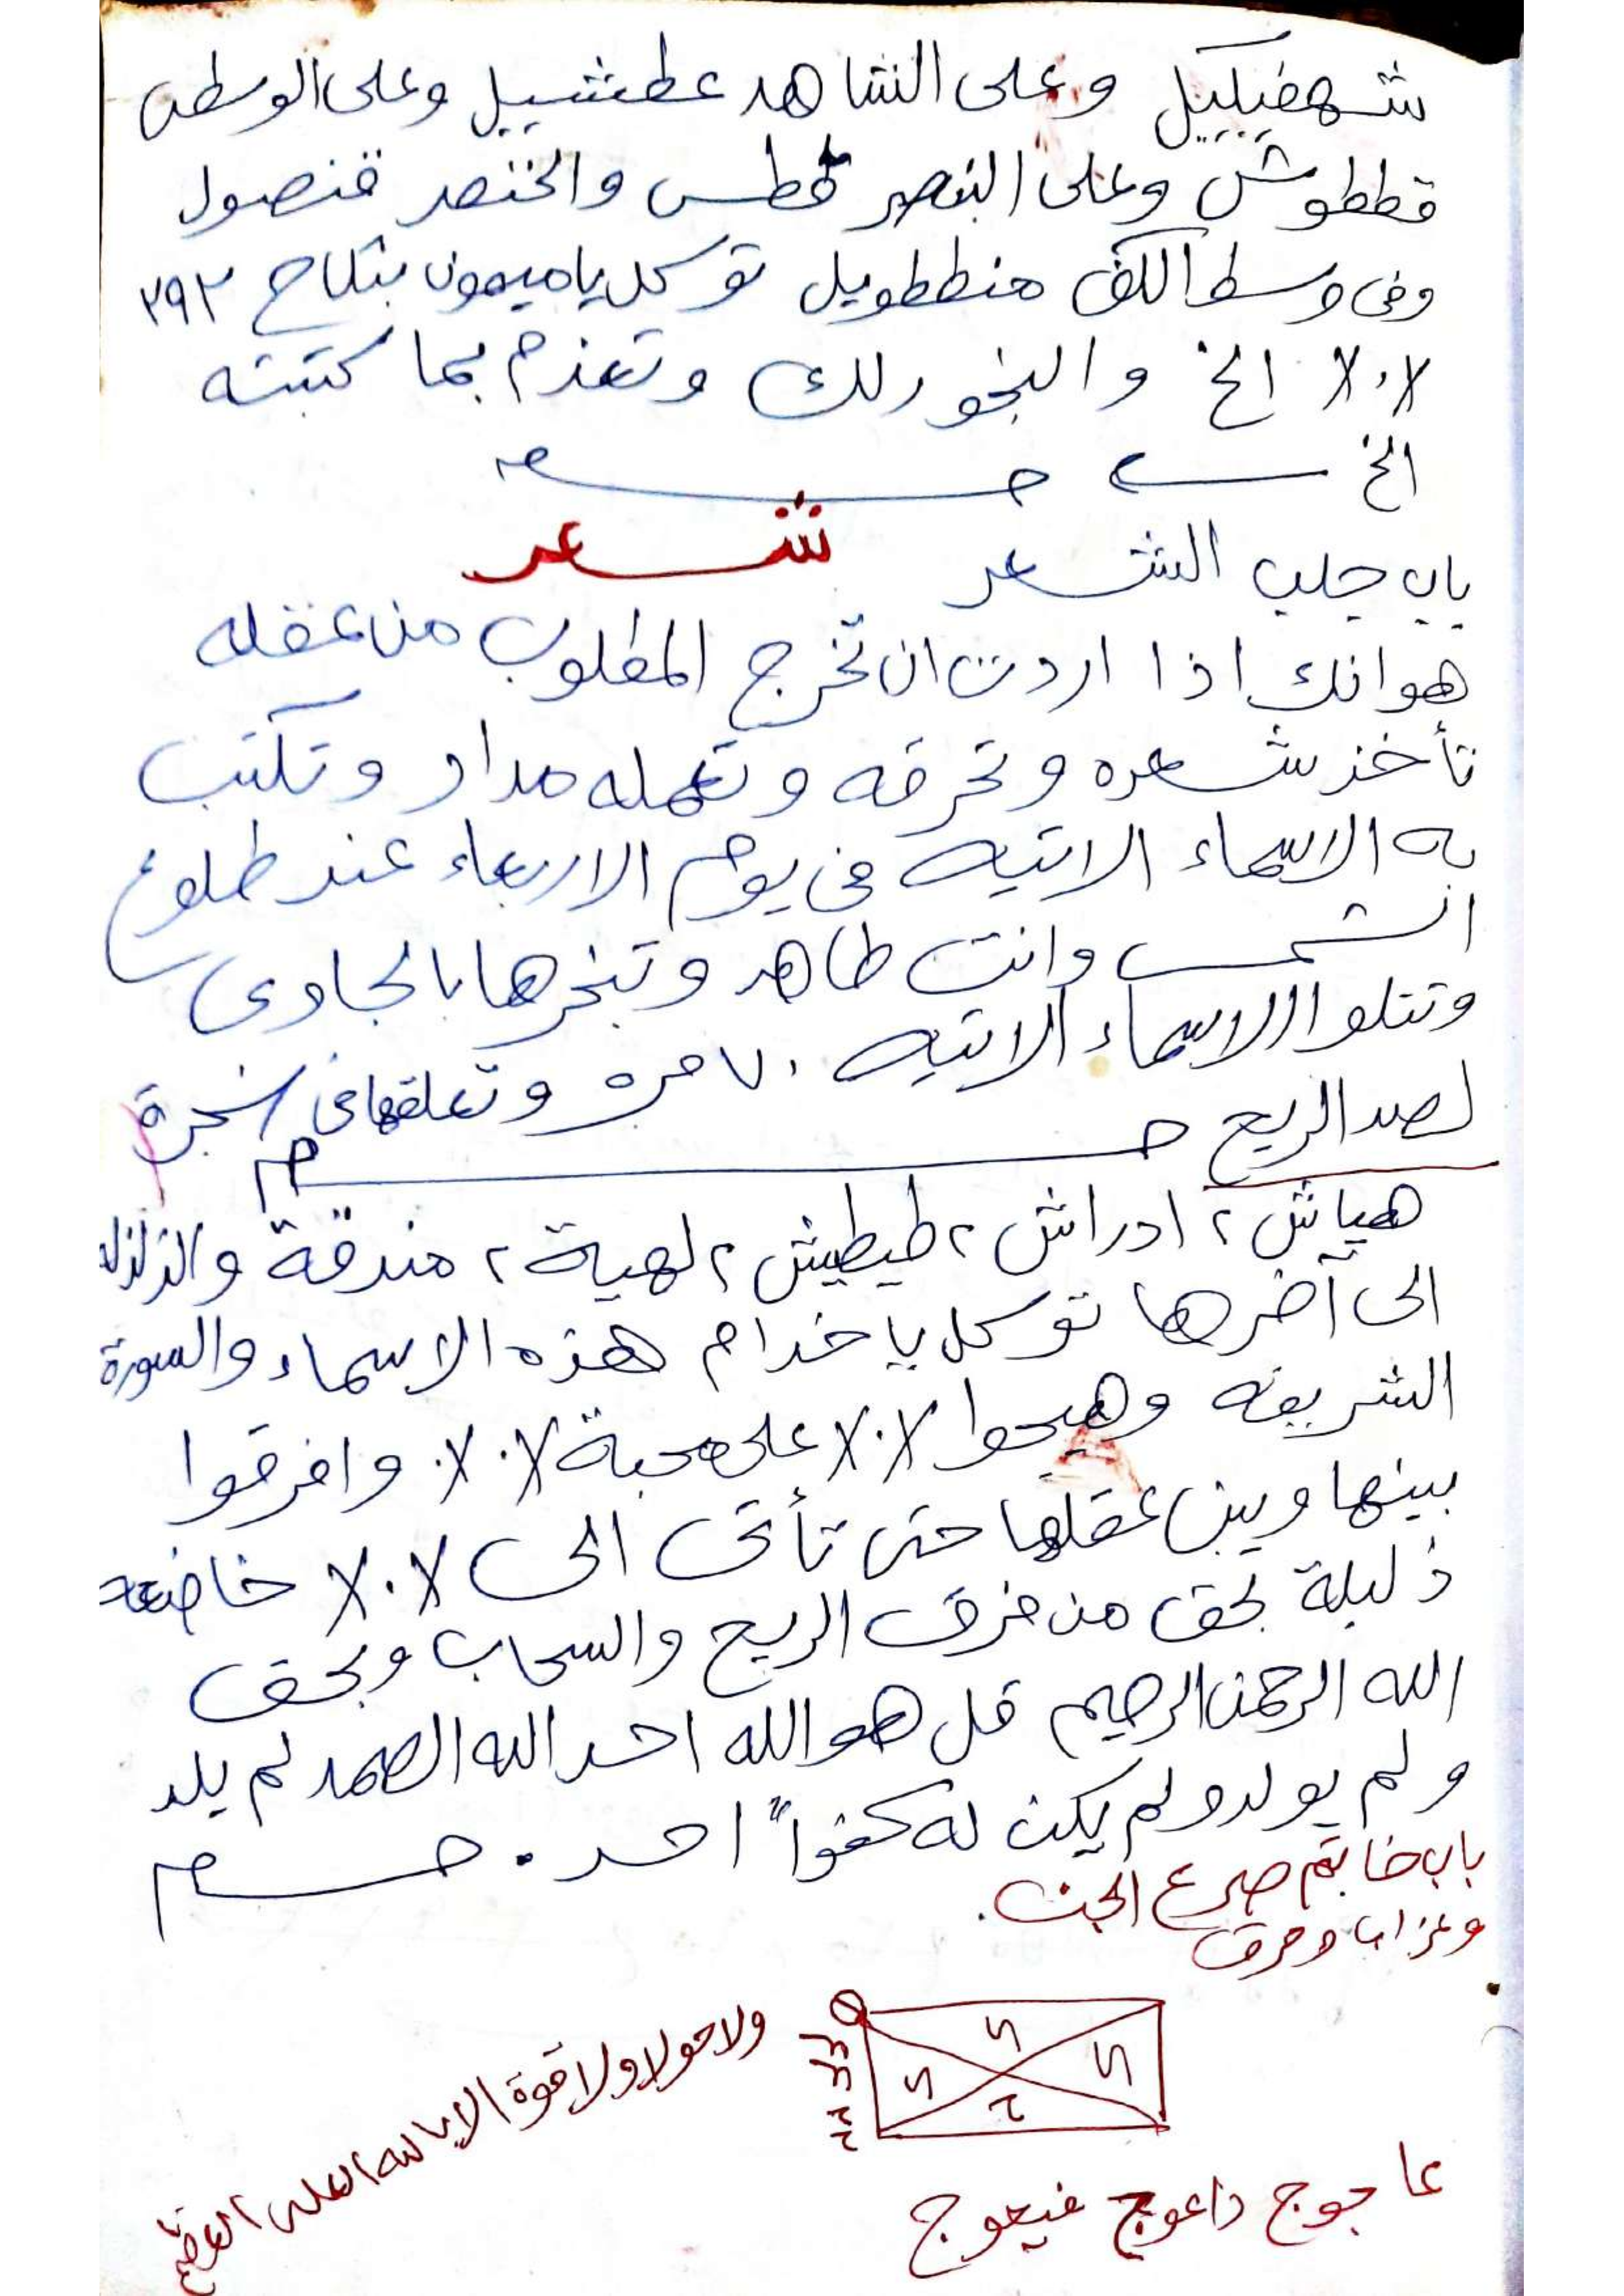 شهفيكيل وعلى الشاهد عطشييل وعلى الوسطى
قططوش وعلى البنصر لطس والخنصر فنصول
وفى وسط الكف منططويل توكل يا ميمون بنكاح ٢٩٢
X.X الخ والبخور لك وتعزم بما كتبته
الخ
باب جلب الشعر شعر
هو انك اذا اردت ان تخرج المطلوب من عقله
تأخذ شعره وتحرقه وتعمله مداد وتكتب
به الاسماء الاتيه فى يوم الاربعاء عند طلوع
الشمس وانت طاهر وتبخرها بالجاوى
وتتلوا الاسماء الاتيه ٧٠ مره وتعلقها فى شجرة
لصد الريح
هياش ٢ ادراش ٢ طيطيش ٢ لهية ٢ مندقة والزلزله
الى آخرها توكل يا خدام هذه الاسماء والسورة
الشريفه وهيجوا X.X على محبة X.X. وافرقوا
بينها وبين عقلها حتى تأتى الى X.X خاضعه
ذليلة بحق من فرق الريح والسحاب وبحق
الله الرحمن الرحيم قل هو الله احد الله الصمد لم يلد
ولم يولد ولم يكن له كفواً احد .
باب خاتم صرع الجن.
وعذابه وحرق
ولا حولا ولا قوة الا بالله العلى العظيم
عاجوج داعوج فيعوج